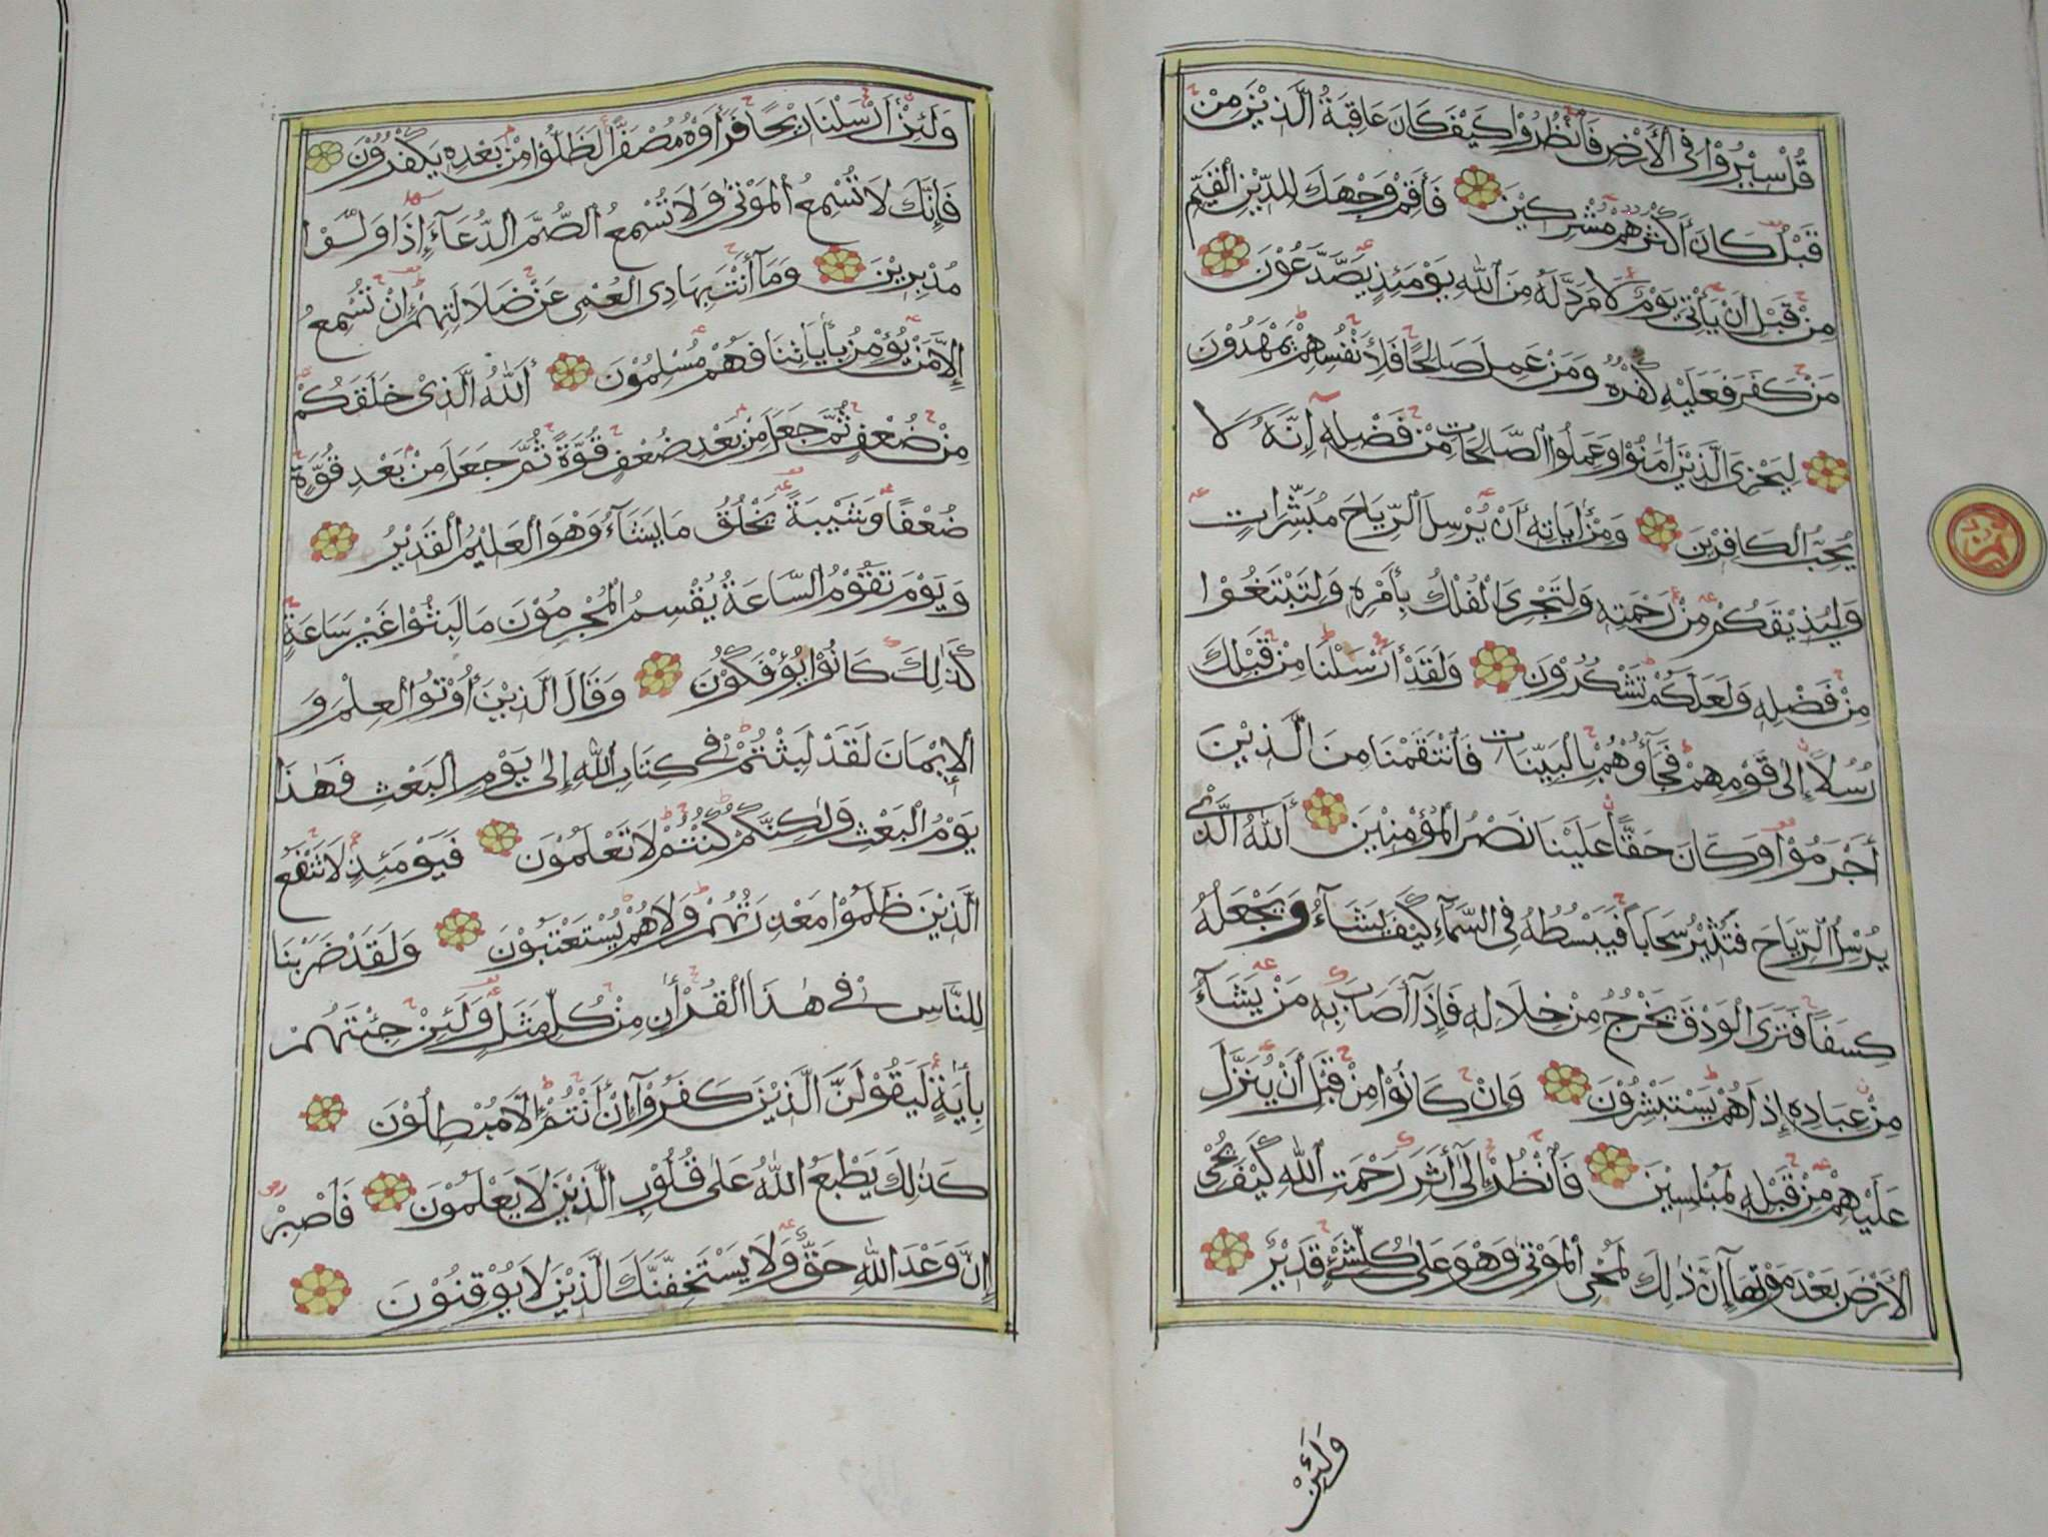 قُلْ سِيْرُوْا فِى الْاَرْضِ فَانْظُرُوْا كَيْفَ كَانَ عَاقِبَةُ الَّذِيْنَ مِنْ
قَبْلُ كَانَ أَكْثَرُهُمْ مُشْرِكِيْنَ فَأَقِمْ وَجْهَكَ لِلدِّيْنِ الْقَيِّمِ
مِنْ قَبْلِ أَنْ يَأْتِىَ يَوْمٌ لَا مَرَدَّ لَهُ مِنَ اللّٰهِ يَوْمَئِذٍ يَصَّدَّعُوْنَ
مَنْ كَفَرَ فَعَلَيْهِ كُفْرُهُ وَمَنْ عَمِلَ صَالِحًا فَلِأَنْفُسِهِمْ يَمْهَدُوْنَ
لِيَجْزِىَ الَّذِيْنَ اٰمَنُوْا وَعَمِلُوا الصَّالِحَاتِ مِنْ فَضْلِهِ إِنَّهُ لَا
يُحِبُّ الْكَافِرِيْنَ وَمِنْ أٰيَاتِهِ أَنْ يُرْسِلَ الرِّيَاحَ مُبَشِّرَاتٍ
وَلِيُذِيْقَكُمْ مِنْ رَحْمَتِهِ وَلِتَجْرِىَ الْفُلْكُ بِأَمْرِهِ وَلِتَبْتَغُوْا
مِنْ فَضْلِهِ وَلَعَلَّكُمْ تَشْكُرُوْنَ وَلَقَدْ أَرْسَلْنَا مِنْ قَبْلِكَ
رُسُلًا إِلٰى قَوْمِهِمْ فَجَآؤُهُمْ بِالْبَيِّنَاتِ فَانْتَقَمْنَا مِنَ الَّذِيْنَ
أَجْرَمُوْا وَكَانَ حَقًّا عَلَيْنَا نَصْرُ الْمُؤْمِنِيْنَ أَللّٰهُ الَّذِىْ
يُرْسِلُ الرِّيَاحَ فَتُثِيْرُ سَحَابًا فَيَبْسُطُهُ فِى السَّمَآءِ كَيْفَ يَشَآءُ وَيَجْعَلُهُ
كِسَفًا فَتَرَى الْوَدْقَ يَخْرُجُ مِنْ خِلَالِهِ فَإِذَآ أَصَابَ بِهِ مَنْ يَشَآءُ
مِنْ عِبَادِهِ إِذَا هُمْ يَسْتَبْشِرُوْنَ وَإِنْ كَانُوْا مِنْ قَبْلِ أَنْ يُنَزَّلَ
عَلَيْهِمْ مِنْ قَبْلِهِ لَمُبْلِسِيْنَ فَانْظُرْ إِلٰٓى أَثَرِ رَحْمَتِ اللّٰهِ كَيْفَ يُحْىِ
الْأَرْضَ بَعْدَ مَوْتِهَآ إِنَّ ذٰلِكَ لَمُحْىِ الْمَوْتٰى وَهْوَ عَلٰى كُلِّ شَىْءٍ قَدِيْرٌ
وَلَئِنْ
وَلَئِنْ أَرْسَلْنَا رِيْحًا فَرَأَوْهُ مُصْفَرًّا لَظَلُّوْا مِنْ بَعْدِهِ يَكْفُرُوْنَ
فَإِنَّكَ لَا تُسْمِعُ الْمَوْتٰى وَلَا تُسْمِعُ الصُّمَّ الدُّعَآءَ إِذَا وَلَّوْا
مُدْبِرِيْنَ وَمَآ أَنْتَ بِهَادِى الْعُمْىِ عَنْ ضَلَالَتِهِمْ إِنْ تُسْمِعُ
إِلَّا مَنْ يُؤْمِنُ بِأٰيَاتِنَا فَهُمْ مُسْلِمُوْنَ أَللّٰهُ الَّذِىْ خَلَقَكُمْ
مِنْ ضُعْفٍ ثُمَّ جَعَلَ مِنْ بَعْدِ ضُعْفٍ قُوَّةً ثُمَّ جَعَلَ مِنْ بَعْدِ قُوَّةٍ
ضُعْفًا وَشَيْبَةً يَخْلُقُ مَا يَشَآءُ وَهْوَ الْعَلِيْمُ الْقَدِيْرُ
وَيَوْمَ تَقُوْمُ السَّاعَةُ يُقْسِمُ الْمُجْرِمُوْنَ مَا لَبِثُوْا غَيْرَ سَاعَةٍ
كَذٰلِكَ كَانُوْا يُؤْفَكُوْنَ وَقَالَ الَّذِيْنَ أُوْتُوا الْعِلْمَ وَ
الْإِيْمَانَ لَقَدْ لَبِثْتُمْ فِىْ كِتَابِ اللّٰهِ إِلٰى يَوْمِ الْبَعْثِ فَهٰذَا
يَوْمُ الْبَعْثِ وَلٰكِنَّكُمْ كُنْتُمْ لَا تَعْلَمُوْنَ فَيَوْمَئِذٍ لَا تَنْفَعُ
الَّذِيْنَ ظَلَمُوْا مَعْذِرَتُهُمْ وَلَا هُمْ يُسْتَعْتَبُوْنَ وَلَقَدْ ضَرَبْنَا
لِلنَّاسِ فِىْ هٰذَا الْقُرْأٰنِ مِنْ كُلِّ مَثَلٍ وَلَئِنْ جِئْتَهُمْ
بِأٰيَةٍ لَيَقُوْلَنَّ الَّذِيْنَ كَفَرُوْآ إِنْ أَنْتُمْ إِلَّا مُبْطِلُوْنَ
كَذٰلِكَ يَطْبَعُ اللّٰهُ عَلٰى قُلُوْبِ الَّذِيْنَ لَا يَعْلَمُوْنَ فَاصْبِرْ
إِنَّ وَعْدَ اللّٰهِ حَقٌّ وَلَا يَسْتَخِفَّنَّكَ الَّذِيْنَ لَا يُوْقِنُوْنَ